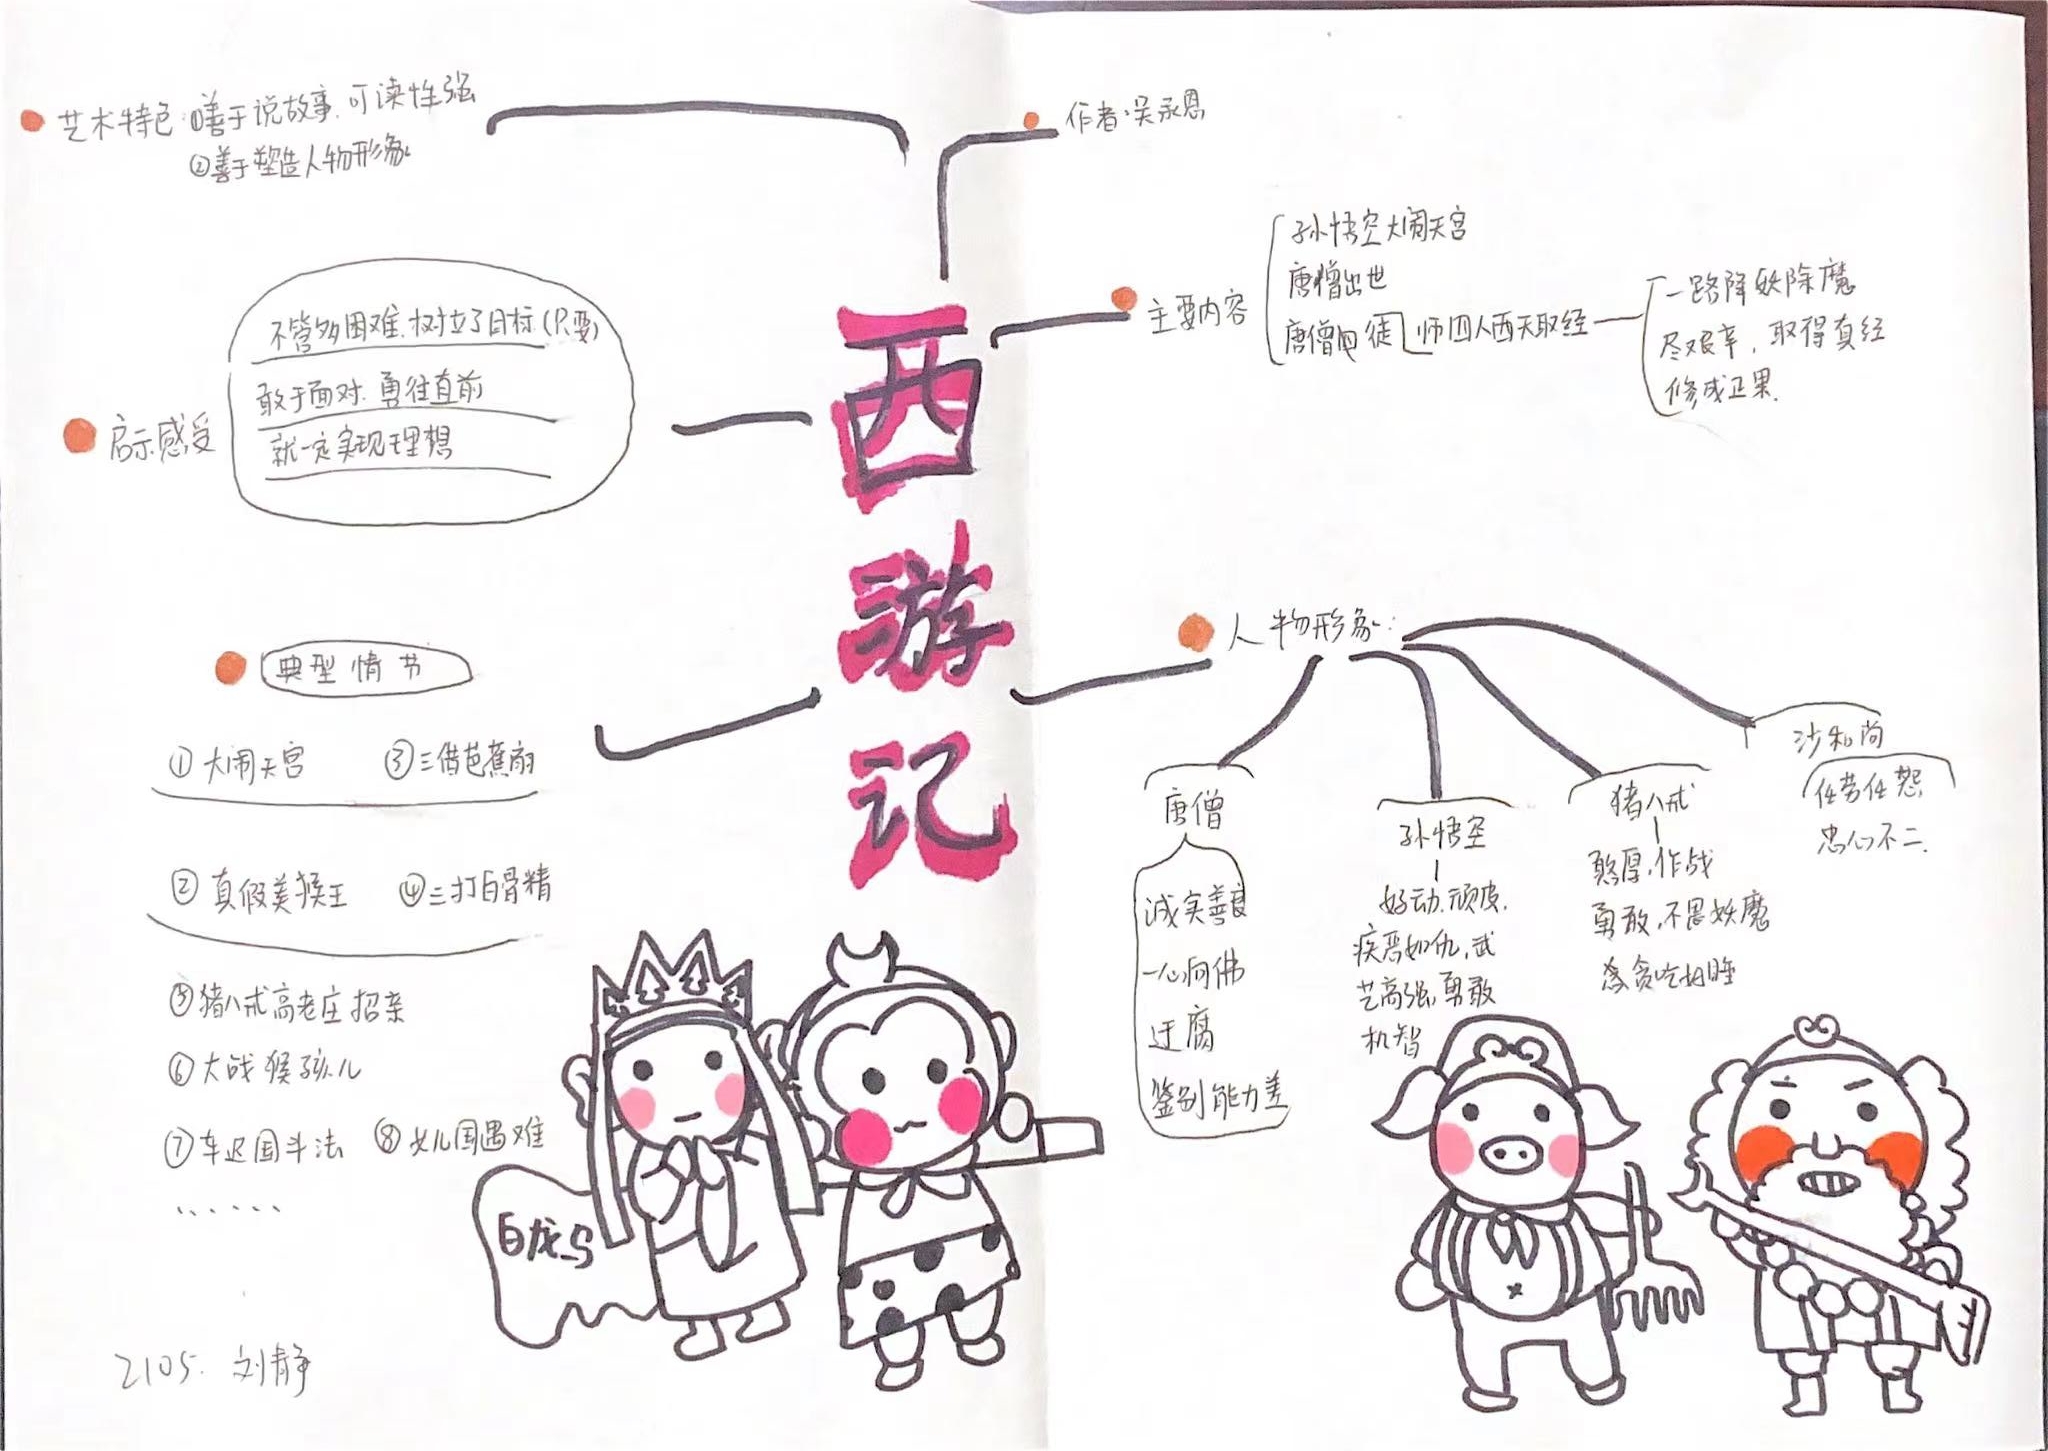 艺术特色:①善于说故事,可读性强
②善于塑造人物形象
作者:吴承恩
主要内容
孙悟空大闹天宫
唐僧出世
唐僧 徒 师四人西天取经
一路降妖除魔
尽艰辛,取得真经
修成正果.
启示感受
不管多困难,树立了目标(只要)
敢于面对,勇往直前
就一定实现理想
西游记
典型情节
①大闹天宫 ③三借芭蕉扇
②真假美猴王 ④三打白骨精
⑤猪八戒高老庄招亲
⑥大战猴孩儿
⑦车迟国斗法 ⑧女儿国遇难
......
人物形象:
唐僧
诚实善良
一心向佛
迂腐
鉴别能力差
孙悟空
好动,顽皮,
疾恶如仇,武
艺高强,勇敢
机智
猪八戒
憨厚,作战
勇敢,不畏妖魔
贪吃
沙和尚
任劳任怨
忠心不二.
白龙马
2105. 刘静